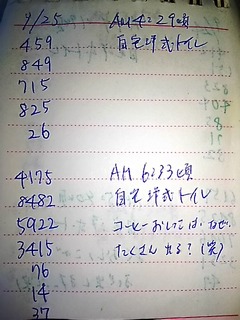 9/25 AM4:29頃
459 自宅洋式トイレ
849
715
825
26
4175 AM 6:33頃
8482 自宅洋式トイレ
5922 コーヒーおしっこは、なぜ
3415 たくさん出る?(笑)
76
14
37